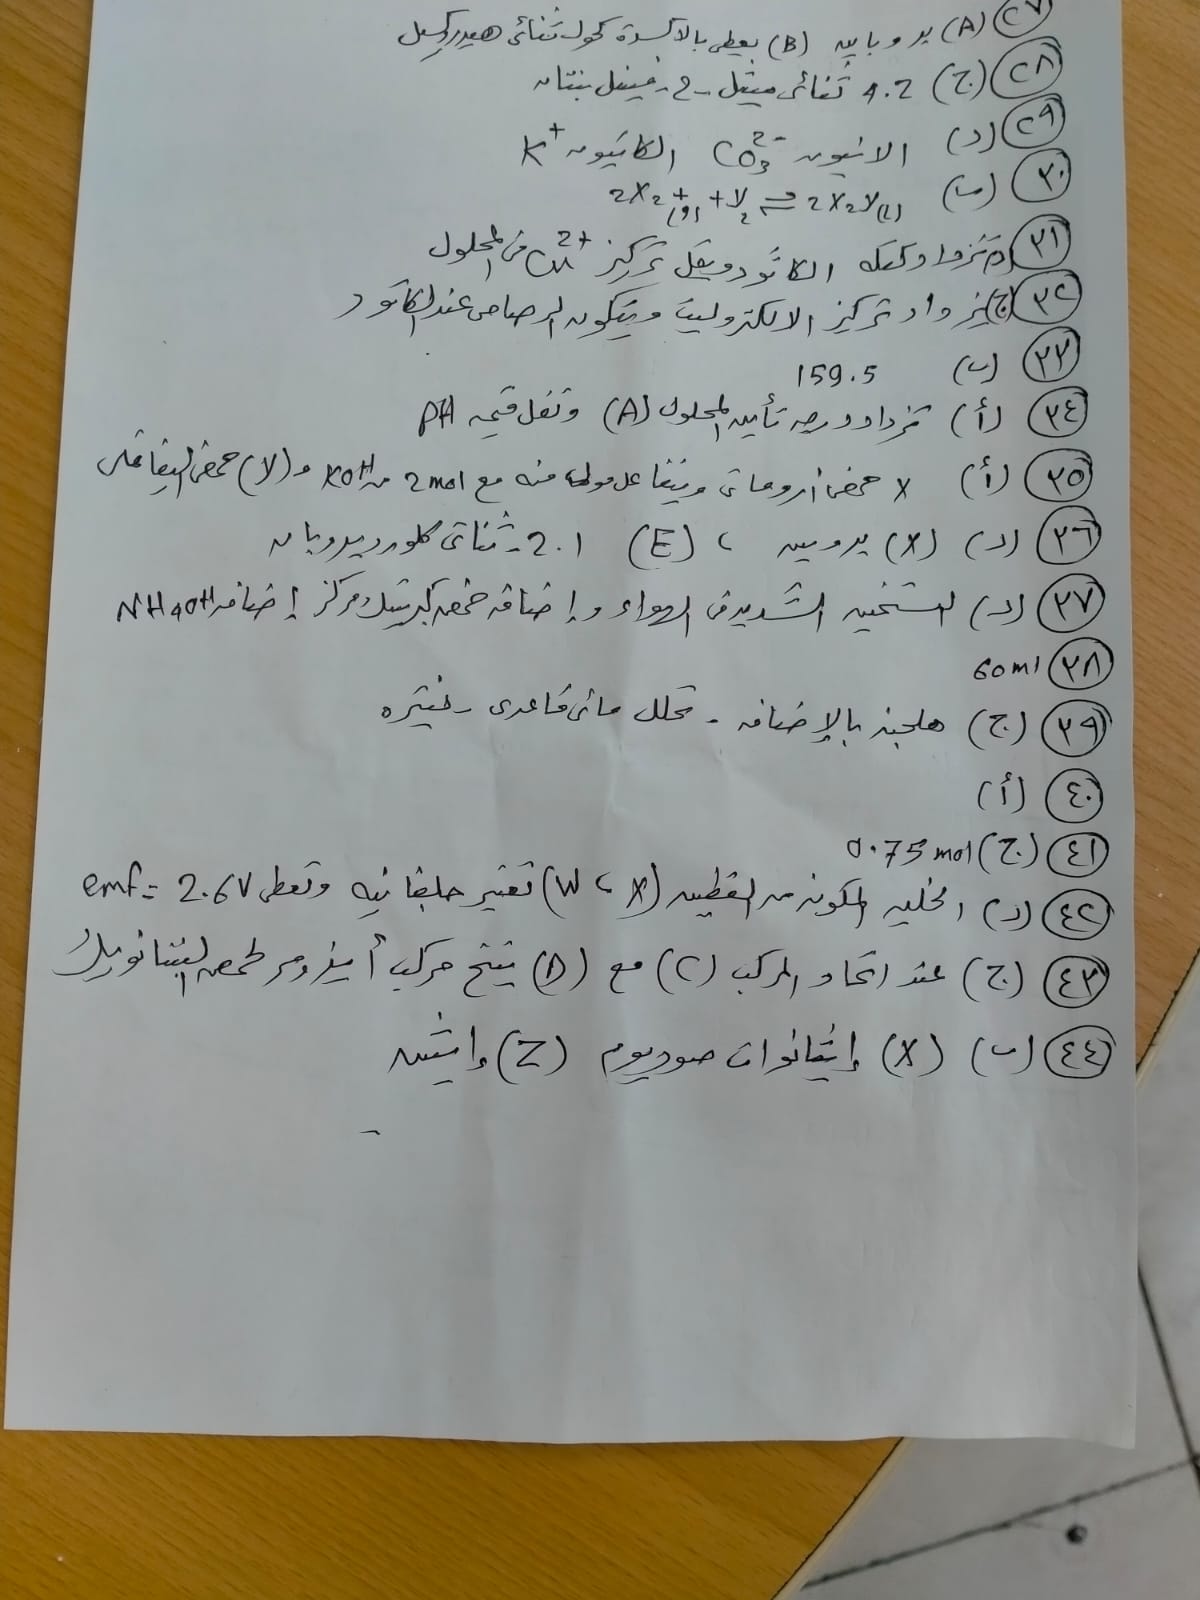 ٢٧ (A) بروباين (B) يعطى بالأكسدة كحول ثنائى هيدروكسيل
٢٨ (ج) 4.2 ثنائى ميثيل -2- فينيل بنتان
٢٩ (د) الانيون CO3 2- الكاتيون K+
٣٠ (ب) 2X2(g) + Y2 ⇌ 2X2Y(l)
٣١ تزداد كتلة الكاثود ويقل تركيز Cu2+ فى المحلول
٣٢ (ج) يزداد تركيز الالكتروليت ويتكون الرصاص عند الكاثود
٣٣ (ب) 159.5
٣٤ (أ) تزداد درجة تأين المحلول (A) وتقل قيمة PH
٣٥ (أ) X حمض أروماتى ويتفاعل مول منه مع 2mol من KOH و (Y) حمض اليفاتى
٣٦ (د) (X) بروبين ، (E) 2.1 - ثنائى كلورو بروبان
٣٧ (د) التسخين الشديد فى الهواء و إضافة حمض كبريتيك مركز إضافة NH4OH
٣٨ 60ml
٣٩ (ج) هلجنة بالإضافة - تحلل مائى قاعدى -
٤٠ (أ)
٤١ (ج) 0.75 mol
٤٢ (د) الخلية المكونة من القطبين (X ، W) تعتبر جلفانية وتعطى emf = 2.6V
٤٣ (ج) عند اتحاد المركب (C) مع (D) ينتج مركب أيزومر لحمض البنتانويك
٤٤ (ب) (X) إيثانوات صوديوم (Z) إيثين